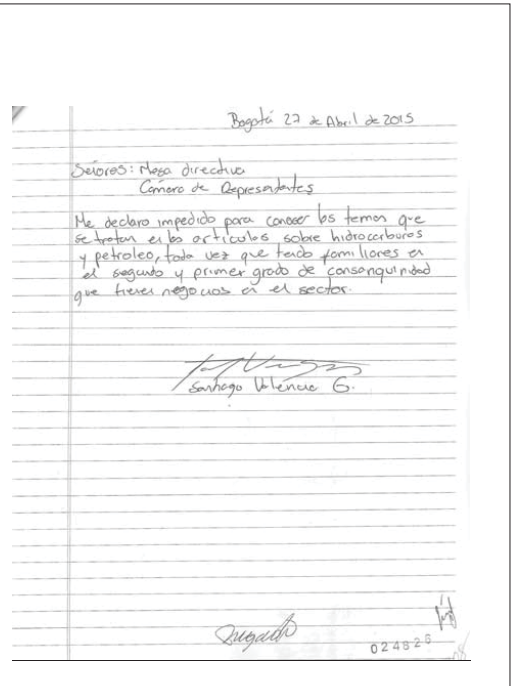 Bogotá 27 de Abril de 2015
Señores: Mesa directiva
Cámara de Representantes
Me declaro impedido para conocer los temas que
se tratan en los artículos sobre hidrocarburos
y petroleo, toda vez que tendo familiares en
el segundo y primer grado de consanguinidad
que tienen negocios en el sector.
Santiago Valencia G.
Negado
024826